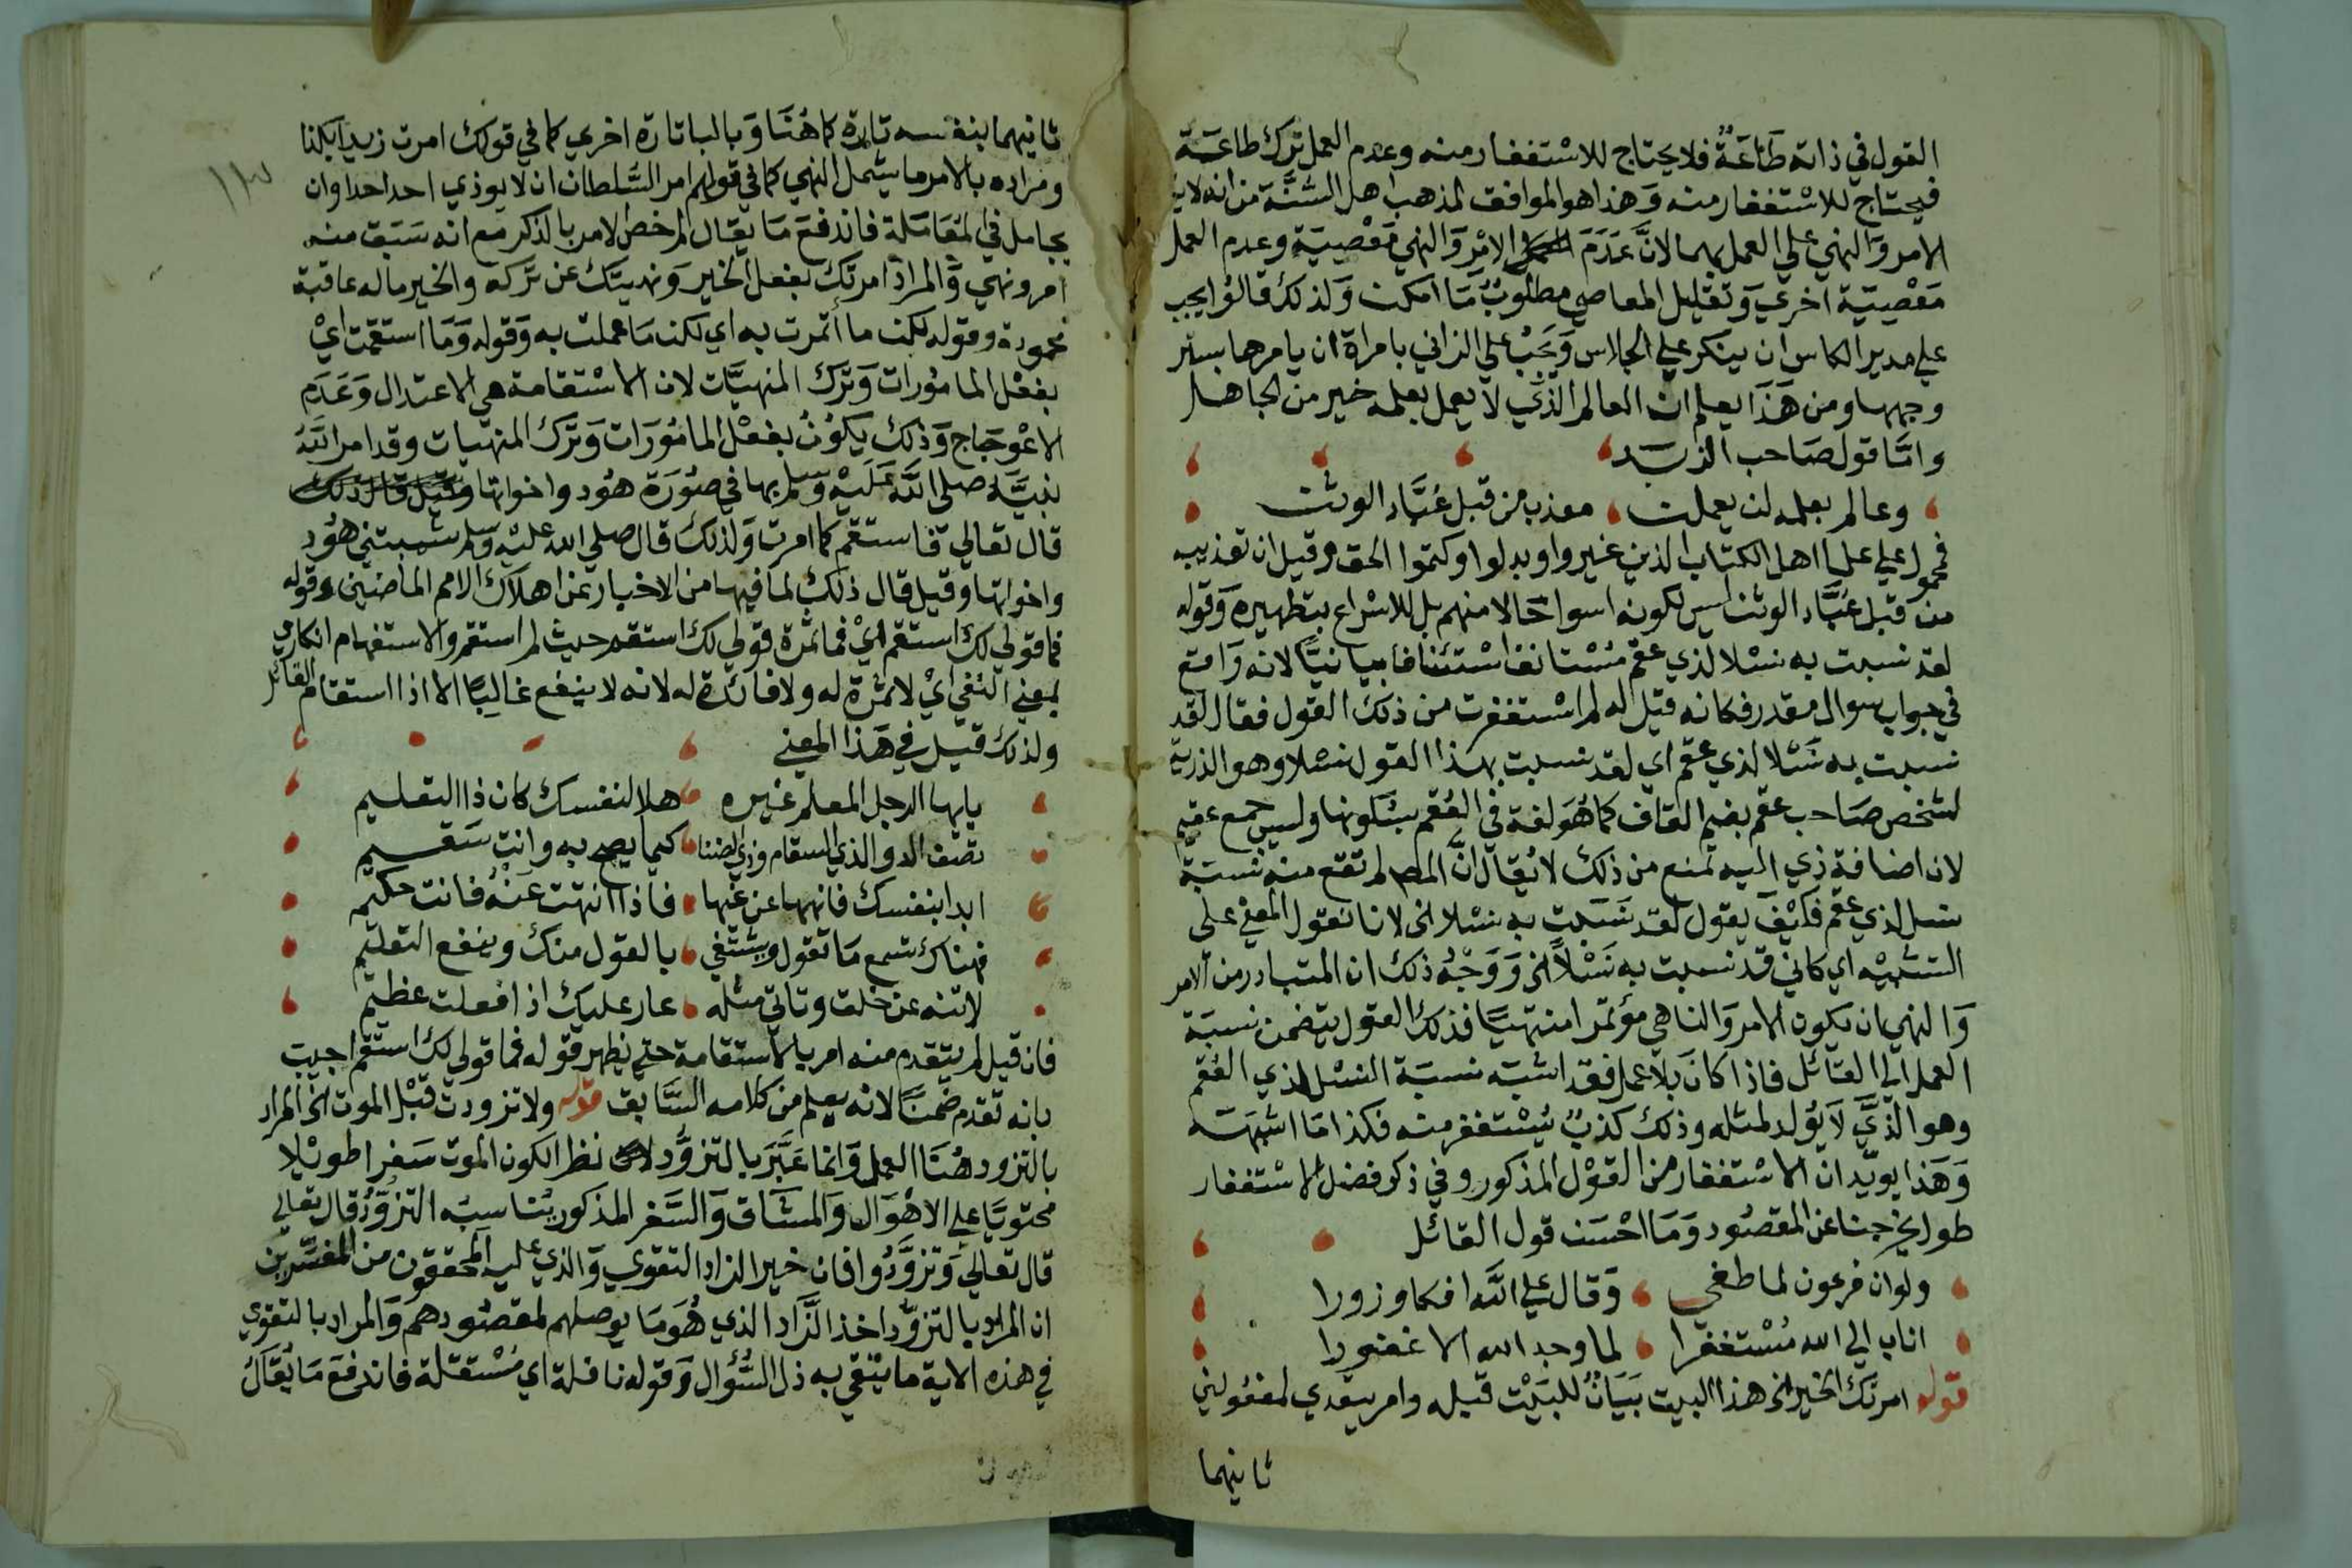 القول في ذاته طَاعَةٌ فلا يحتاج للاسْتغفار منه وعدم العمل تَرك طاعَة
فيحتاج للاسْتغفار منه وَهذا هو الموافق لمذهب اهل السّنَّة من انه لا
الامر وَالنهي علي العمل بهما لانَّ عَدَمَ العمل الامْر وَالنهي مَعْصِيَة وعدم العمل
مَعْصِيَة اخري وَتقليل المعاصي مطلوبٌ مَا امكن وَلذلك قالوُا يجب
علي مدير الكاس ان ينكر علي الجلاس وَيجبُ علي الزاني بامراة ان يامرها بستر
وجهها ومن هَذَا يعلم ان العالم الذَي لا يعمل بعلمه خير من الجاهل
وامَّا قول صَاحب الزبَد
وعالم بعلمه لن يعملن معذب من قبل عُبَّاد الوثن
فمحمول علي علما اهل الكتاب الذين غيروا وبدلوا وكتموا الحق وقيل ان تعذيبه
من قبل عُبَّاد الوثن ليس لكونه اسوا حَالا منهم بل للاسْراع بتطهيره وَقوله
لقد نسبت به نسْلا لذي عقم مُسْتانف اسْتئنافا بيانيًّا لانه وَاقع
في جواب سوال مقدر فكانه قيل له لم اسْتغفرت من ذلك القول فقال لقد
نسبت به نَسْلا لذي عقم اي لقد نسبت بهذا القول نسْلا وهو الذرية
لشخص صَاحب عقم بضم القاف كما هُوَ لغة في العُقم بسُكونها وليس جمع عقيم
لان اضافة ذي اليه تمنع من ذلك لا يُقال انَّ المص لم تقع منه نسبَة
نسل لذي عقم فكَيْفَ يقول لقد نسَبت به نسْلا الخ لانا نَقول المعني علي
التشبيْه اي كاني قد نسبت به نَسْلاً الخ وَوَجْهُ ذلك ان المتبادر من الامر
وَالنهي ان يكون الامر وَالناهي مؤتمرا منتهيًا فذلك القول يتضمن نسبَة
العمل الي القائل فاذا كانَ بلا عمل فقد اشبَه نسبَة النسْل لذي العُقم
وهو الذَّي لاَ يُولد لمثله وذلك كذبٌ يُسْتغفر منه فكذا مَا اشبهَه
وَهَذا يويّد ان الاسْتغفار من القوْل المذكور وفي ذكر فضل الاسْتغفار
طول يخرجنا عن المقصُود وَمَا احْسَن قول القائل
ولو ان فرعون لما طغي وَقال علي اللّه افكا وزورا
اناب الي الله مُسْتغفرا لما وجد الله الا غفورا
قوله امرتك الخير الخ هذا البيت بَيَانٌ للبَيْت قبله وامر يتعدي لمفعُولين
ثانيهما
ثانيهما بنفسه تارة كما هُنَا وَبالبا تارة اخري كما في قولك امرت زيدا بكذا
ومراده بالامر ما يشمل النهي كما في قولهم امر السَّلطان ان لا يوذي احد احدا وان
يجامل في المُعَامَلة فاندفعَ مَا يقال لم خص الامر بالذكر مَع انه سَبَق منه
امر ونهي وَالمراد امرتك بفعل الخير وَنهيتك عن تَركه والخير ماله عاقبة
محمودة وقوله لكن ما أتمرت به اي لكن مَا عملت به وَقوله وَمَا استقمت ايْ
بفعْل المامُورات وَتَرك المنهيَّات لان الاسْتقامة هي الاعتدال وَعَدَم
الاعْوجَاج وَذلك يكوُنُ بفعْل المامُورَات وَتَرك المنهيات وقد امر اللّه
نبيَّه صلي اللّه عَلَيْه وَسَلم بها في صوُرَة هُود واخواتها
قال تعالي فاستقم كما امرت وَلذلكَ قال صلي الله عليْه وَسلم شيبتني هُود
واخواتها وقيل قال ذلك لما فيها من الاخبار عن اهلاك الامم الماضين وقوله
فما قولي لك استقم ايْ فما ثمرة قولي لك استقم حيث لم استقم والاستفهام انكاري
بمعني النفي ايْ لا ثمرة له ولا فائدة له لانه لا ينفع غالِبًا الا اذا استقام القائل
ولذلك قيل في هَذا المعني
يايها الرجل المعلم غيره هلا لنفسك كان ذا التعليم
تصف الدوا لذي السقام وذي الضنا كيما يصح به وانت سَقيم
ابدا بنفسك فانهها عن غيها فاذا انتهت عَنْهُ فانت حكيم
فهناك تسمع مَا تقول ويشتفي بالقول منك وينفع التعليم
لا تنه عن خلق وتاتي مثله عار عليك اذا فعلت عظيم
فان قيل لم يتقدم منه امر بالاستقامة حتي يظهر قوله فما قولي لك استقم اجيب
بانه تقدم ضمنًا لانه يعلم من كلامه السَّابق قوله ولا تزودت قَبْل الموت الخ المراد
بالتزود هُنَا العمل وَانما عَبَّرَ بالتزوُّد نظرا لكون الموت سَفرا طويْلا
محتويًا علي الاهْوَال وَالمشَاق وَالسَّفر المذكور يُناسبُه التزوّدُ قال تعالي
قال تعالي وَتزوَّدُوا فان خير الزاد التقوي وَالذي عليه المحققون من المفسّرين
ان المراد بالتزوُّد اخذ الزَّاد الذي هُوَ مَا يوصلهم لمقصُودهم وَالمراد بالتقوي
في هذه الاية ما يتقي به ذل السُّؤال وَقوله نافلة اي مُسْتقلة فاندفعَ مَا يُقَالُ